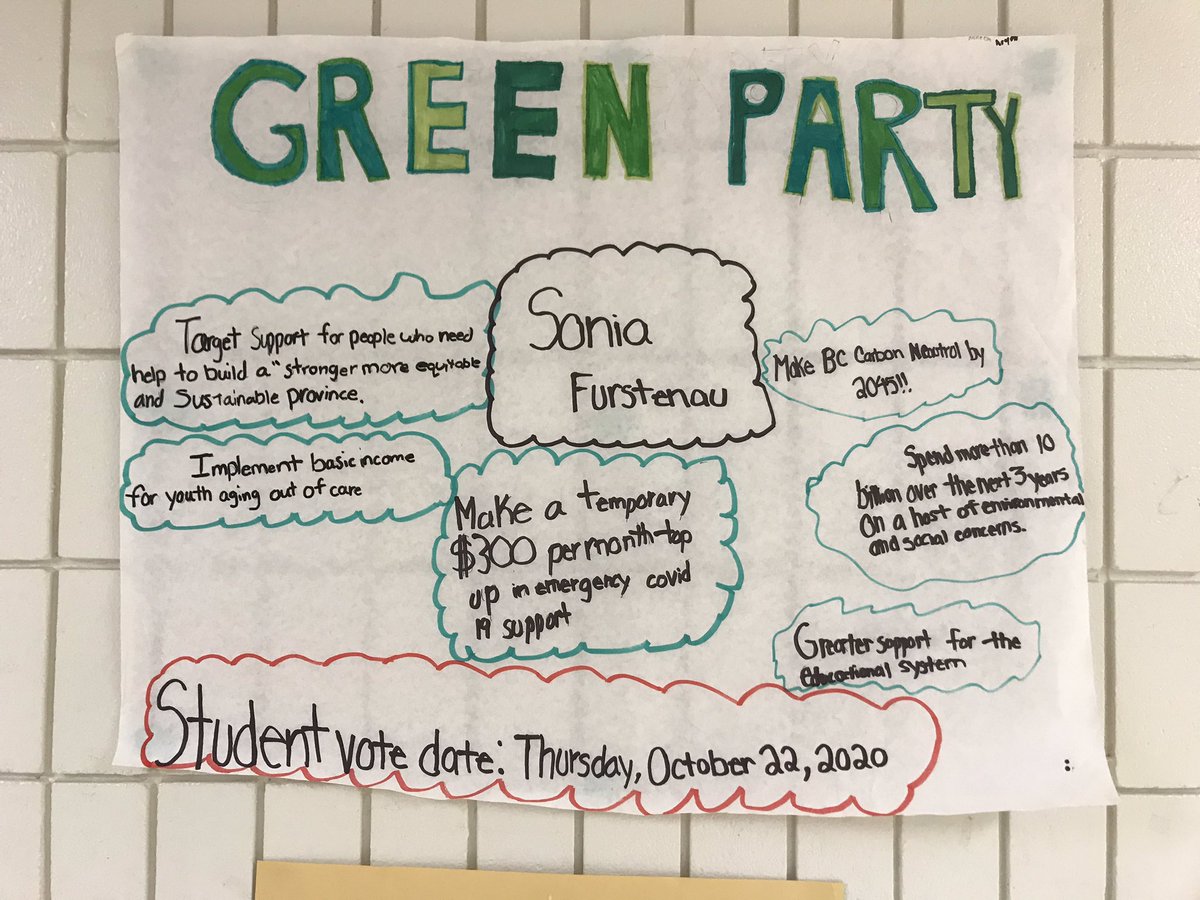 GREEN PARTY
Sonia
Furstenau
Target support for people who need
help to build a "stronger more equitable
and Sustainable province.
Implement basic income
for youth aging out of care
Make a temporary
$300 per month top
up in emergency covid
19 support
Make BC Carbon Neutral by
2045!!.
Spend more than 10
billion over the next 3 years
on a host of environmental
and social concerns.
Greater support for the
educational system
Student vote date: Thursday, October 22, 2020